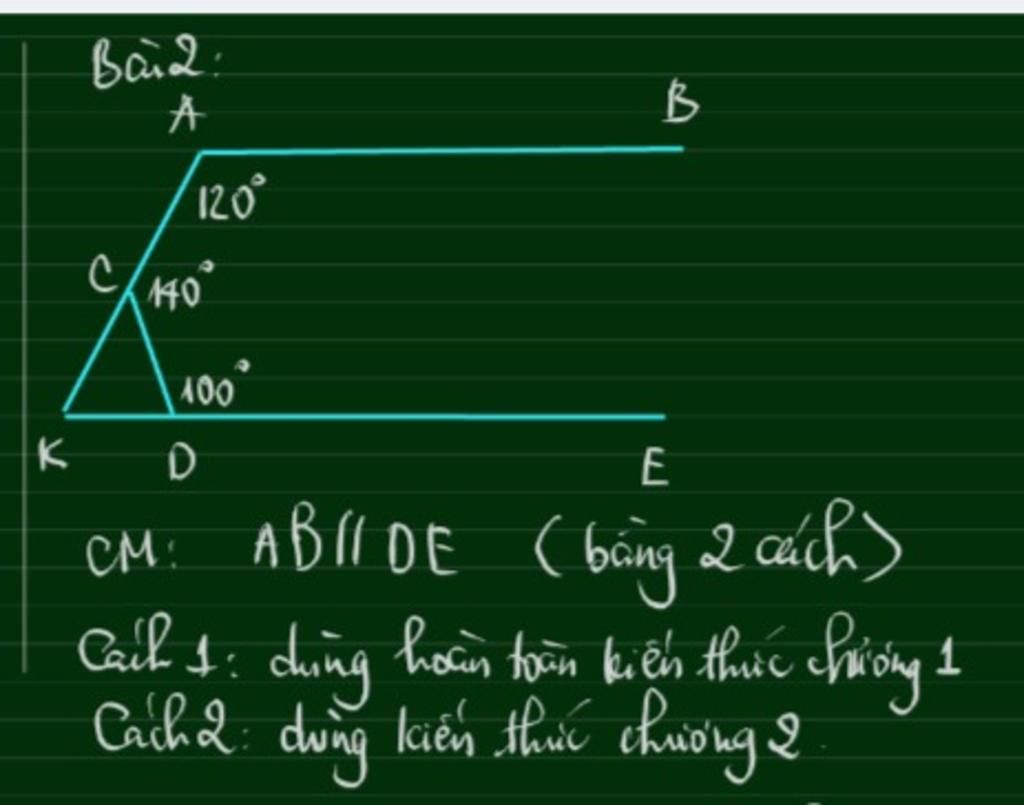 Bài 2:
A
B
120°
C
140°
100°
K
D
E
CM: AB // DE (bằng 2 cách)
Cách 1: dùng hoàn toàn kiến thức chương 1
Cách 2: dùng kiến thức chương 2.